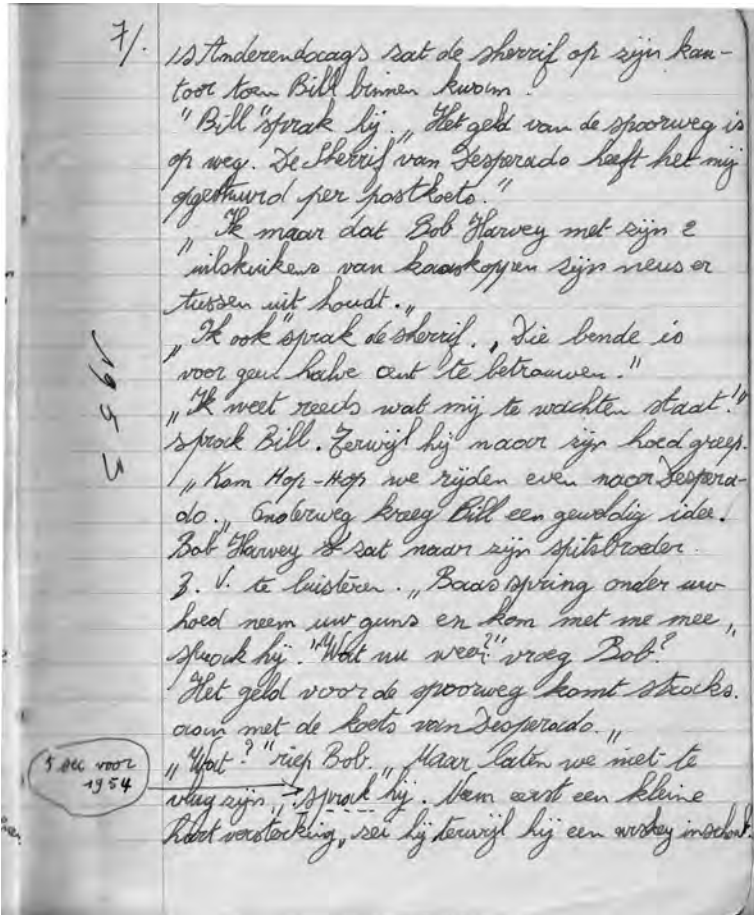 7/.
is Anderendaags sat de sherrif op zijn kan-
toor toen Bill binnen kwam.
"Bill" sprak hij. „Het geld van de spoorweg is
op weg. De Sherrif van Desperado heeft het mij
opgestuurd per postkoets."
„Ik maar dat Bob Harvey met zijn 2
uilskuikens van kaaskoppen zijn neus er
tussen uit houdt.„
„Ik ook" sprak de sherrif. „Die bende is
voor geen halve cent te betrouwen."
„Ik weet reeds wat mij te wachten staat!"
sprak Bill. Terwijl hij naar zijn hoed greep.
„Kom Hop-Hop we rijden even naar Despera-
do.„ Onderweg kreeg Bill een geweldig idee.
Bob Harvey sat naar zijn spitsbroeder
Z. V. te luisteren. „Baas spring onder uw
hoed neem uw guns en kom met me mee„
sprak hij. "Wat nu weer?" vroeg Bob?
Het geld voor de spoorweg komt straks
aan met de koets van Desperado.„
„Wat?" riep Bob. „Maar laten we niet te
vlug zijn„ sprak hij. Neem eerst een kleine
hartversterking„ zei hij terwijl hij een wiskey inschonk.
1953
5 sec voor
1954